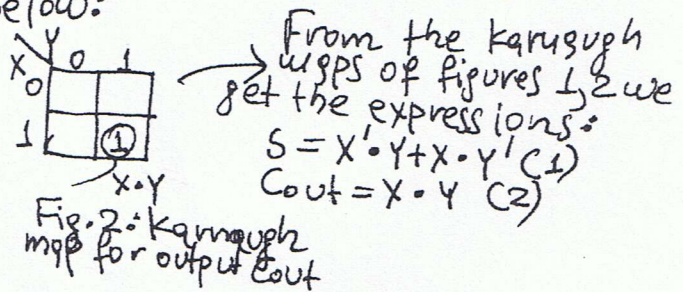 below:
Y
X 0 1
0
1 1
X•Y
Fig. 2: Karnaugh
map for output Cout
From the Karugugh
maps of figures 1,2 we
get the expressions:
S = X'•Y+X•Y' (1)
Cout = X•Y (2)